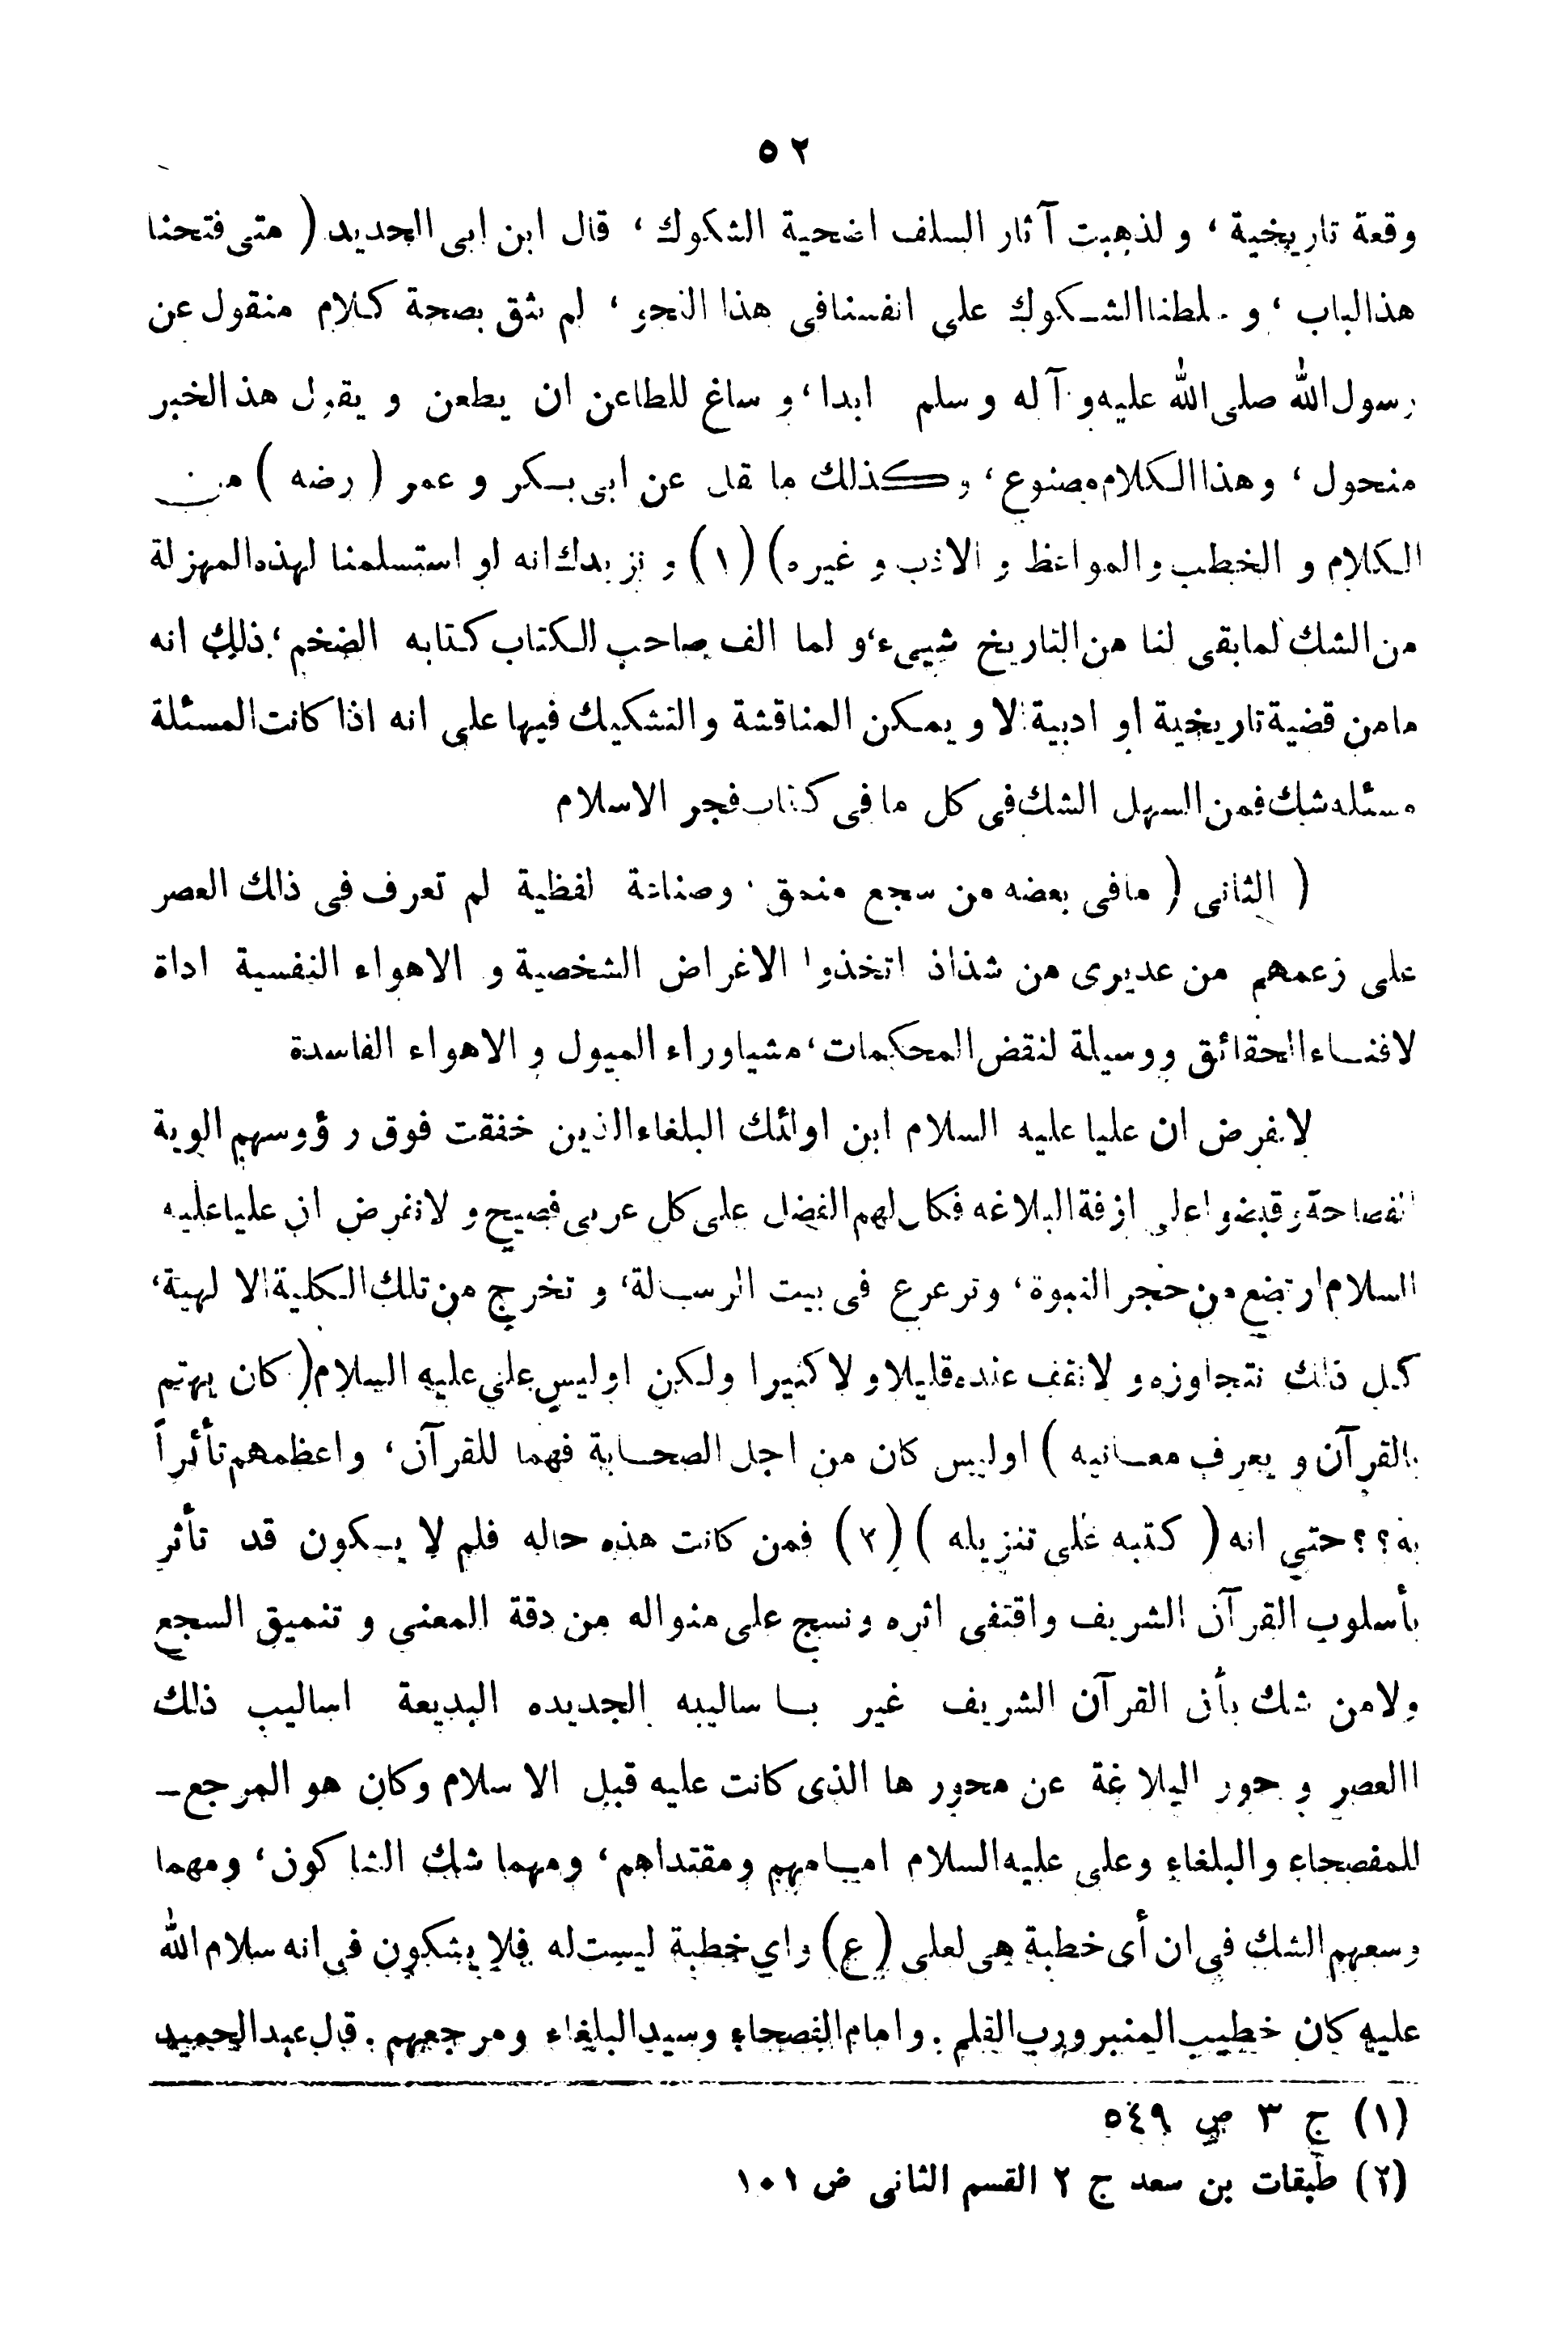 ٥٢
وقعة تاريخية ، و لذهبت آثار السلف اضحية الشكوك ، قال ابن ابى الحديد ( متى فتحنا
هذالباب ، و سلطناالشكوك على انفسنافى هذا النحو ، لم نثق بصحة كلام منقول عن
رسول الله صلى الله عليه و آله وسلم ابدا ، و ساغ للطاعن ان يطعن و يقول هذ الخبر
منحول ، وهذا الكلام مصنوع ، وكذلك ما نقل عن ابى بكر و عمر ( رضه ) من
الكلام و الخطب والمواعظ و الادب و غيره) (١) و نزيدك انه لو استسلمنا لهذه المهزلة
من الشك لمابقى لنا من التاريخ شيىء ، و لما الف صاحب الكتاب كتابه الضخم ، ذلك انه
مامن قضية تاريخية او ادبية الا و يمكن المناقشة والتشكيك فيها على انه اذا كانت المسئلة
مسئله شك فمن السهل الشك فى كل ما فى كتاب فجر الاسلام
( الثانى ) مافى بعضه من سجع منمق . وصناعة لفظية لم تعرف فى ذالك العصر
على زعمهم من عذيرى من شذاذ اتخذوا الاغراض الشخصية و الاهواء النفسية اداة
لافنـاء الحقائق ووسيلة لنقض المحكمات ، مشيا وراء الميول و الاهواء الفاسدة
لانفرض ان عليا عليه السلام ابن اولئك البلغاء الذين خفقت فوق رؤوسهم الوية
الفصاحة وقبضوا على ازفة البلاغه فكان لهم الفضل على كل عربى فصيح و لانفرض ان عليا عليه
السلام ارتضع من حجر النبوة ، وترعرع فى بيت الرسـالة ، و تخرج من تلك الكلية الا لهية ،
كل ذلك نتجاوزه و لانقف عنده قليلا و لا كثيرا ولكن اوليس على عليه السلام ( كان يهتم
بالقرآن و يعرف معـانيه ) اوليس كان من اجل الصحـابة فهما للقرآن ، واعظمهم تأثراً
به ؟؟ حتي انه ( كتبه على تنزيله ) (٢) فمن كانت هذه حاله فلم لا يـكون قد تأثر
بأسلوب القرآن الشريف واقتفى اثره ونسج على منواله من دقة المعنى و تنميق السجع
ولامن شك بأن القرآن الشريف غير بـا ساليبه الجديده البديعة اساليب ذلك
االعصر و حور البلاغة عن محور ها الذى كانت عليه قبل الا سلام وكان هو المرجع ـ
للمفصحاء والبلغاء وعلى عليه السلام امـامهم ومقتداهم ، ومهما شك الشاكون ، ومهما
وسعهم الشك فى ان أى خطبة هى لعلى (ع) واي خطبة ليست له فلا يشكون فى انه سلام الله
عليه كان خطيب المنبر ورب القلم . وامام الفصحاء وسيد البلغاء ومرجعهم . قال عبدالحميد
(١) ج ٣ ص ٥٤٩
(٢) طبقات بن سعد ج ٢ القسم الثانى ض ١٠١